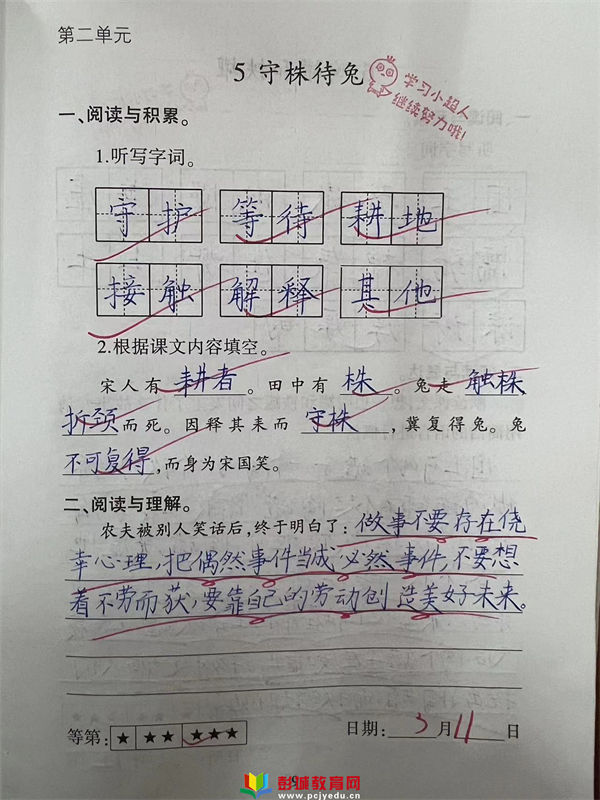 第二单元
5 守株待兔
学习小超人
继续努力哦!
一、阅读与积累。
1.听写字词。
守护 等待 耕地
接触 解释 其他
2.根据课文内容填空。
宋人有 耕者 。田中有 株 。兔走 触株,
折颈 而死。因释其来而 守株 ,冀复得兔。兔
不可复得 ,而身为宋国笑。
二、阅读与理解。
农夫被别人笑话后,终于明白了: 做事不要存在侥
幸心理,把偶然事件当成必然事件,不要想
着不劳而获,要靠自己的劳动创造美好未来。
等第: ★ ★★ ★★★ 日期: 3 月 11 日
彭城教育网
www.pcjyedu.cn